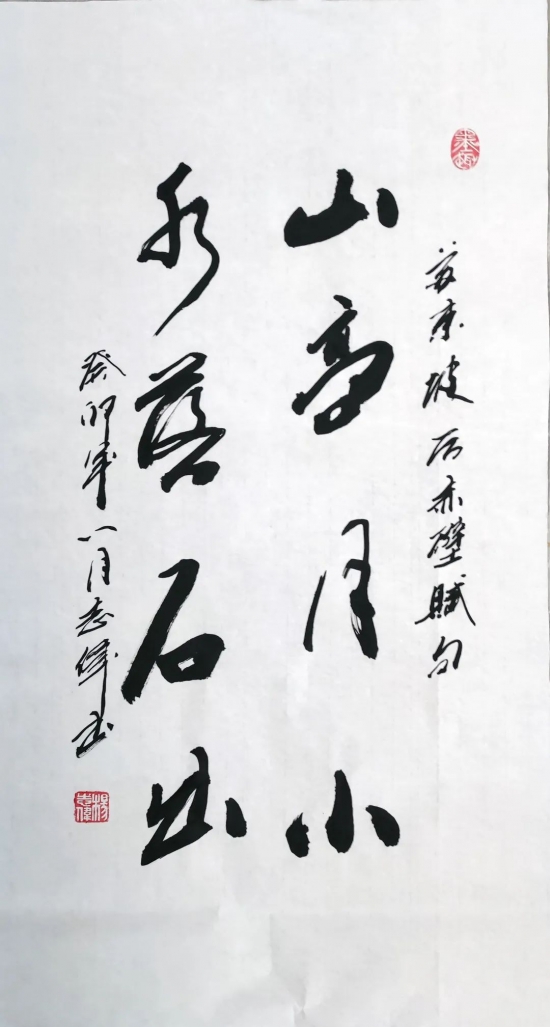 苏东坡后赤壁赋句
山高月小
水落石出
癸卯年八月志伟书
杨志伟